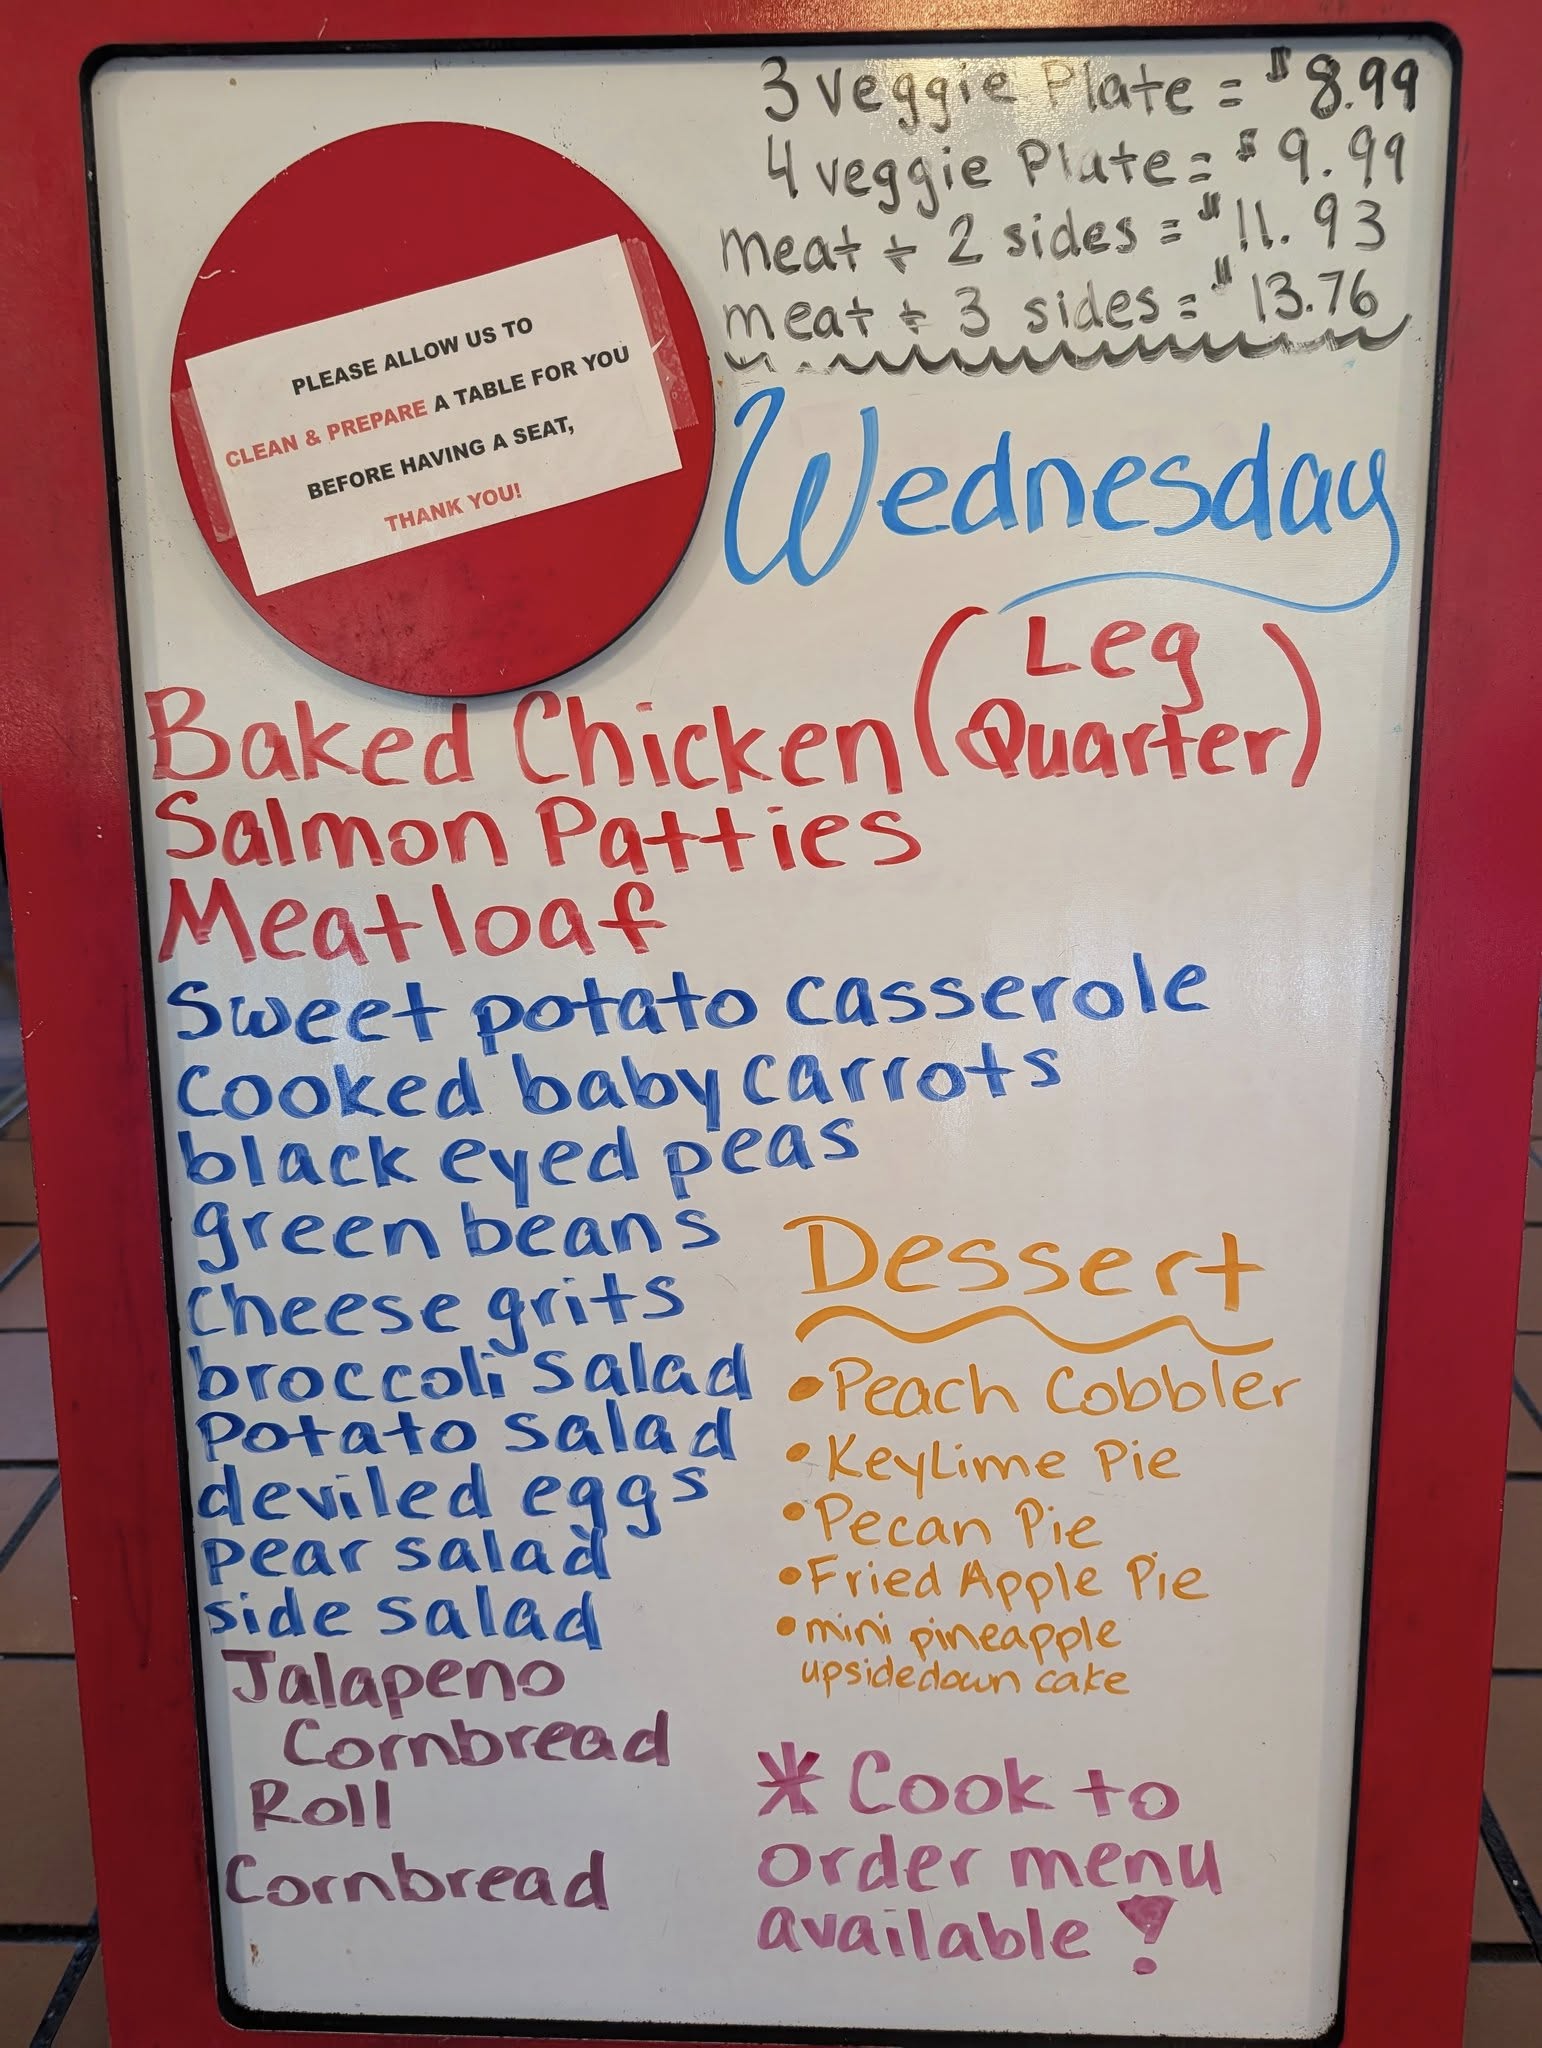 3 veggie Plate = $8.99
4 veggie Plate = $9.99
meat + 2 sides = $11.93
meat + 3 sides = $13.76
PLEASE ALLOW US TO
CLEAN & PREPARE A TABLE FOR YOU
BEFORE HAVING A SEAT,
THANK YOU!
Wednesday
Baked Chicken (Leg
Quarter)
Salmon Patties
Meatloaf
Sweet potato casserole
cooked baby carrots
black eyed peas
green beans
cheese grits
broccoli salad
potato salad
deviled eggs
pear salad
side salad
Jalapeno
Cornbread
Roll
Cornbread
Dessert
•Peach Cobbler
•KeyLime Pie
•Pecan Pie
•Fried Apple Pie
•mini pineapple
upsidedown cake
* Cook to
order menu
available!